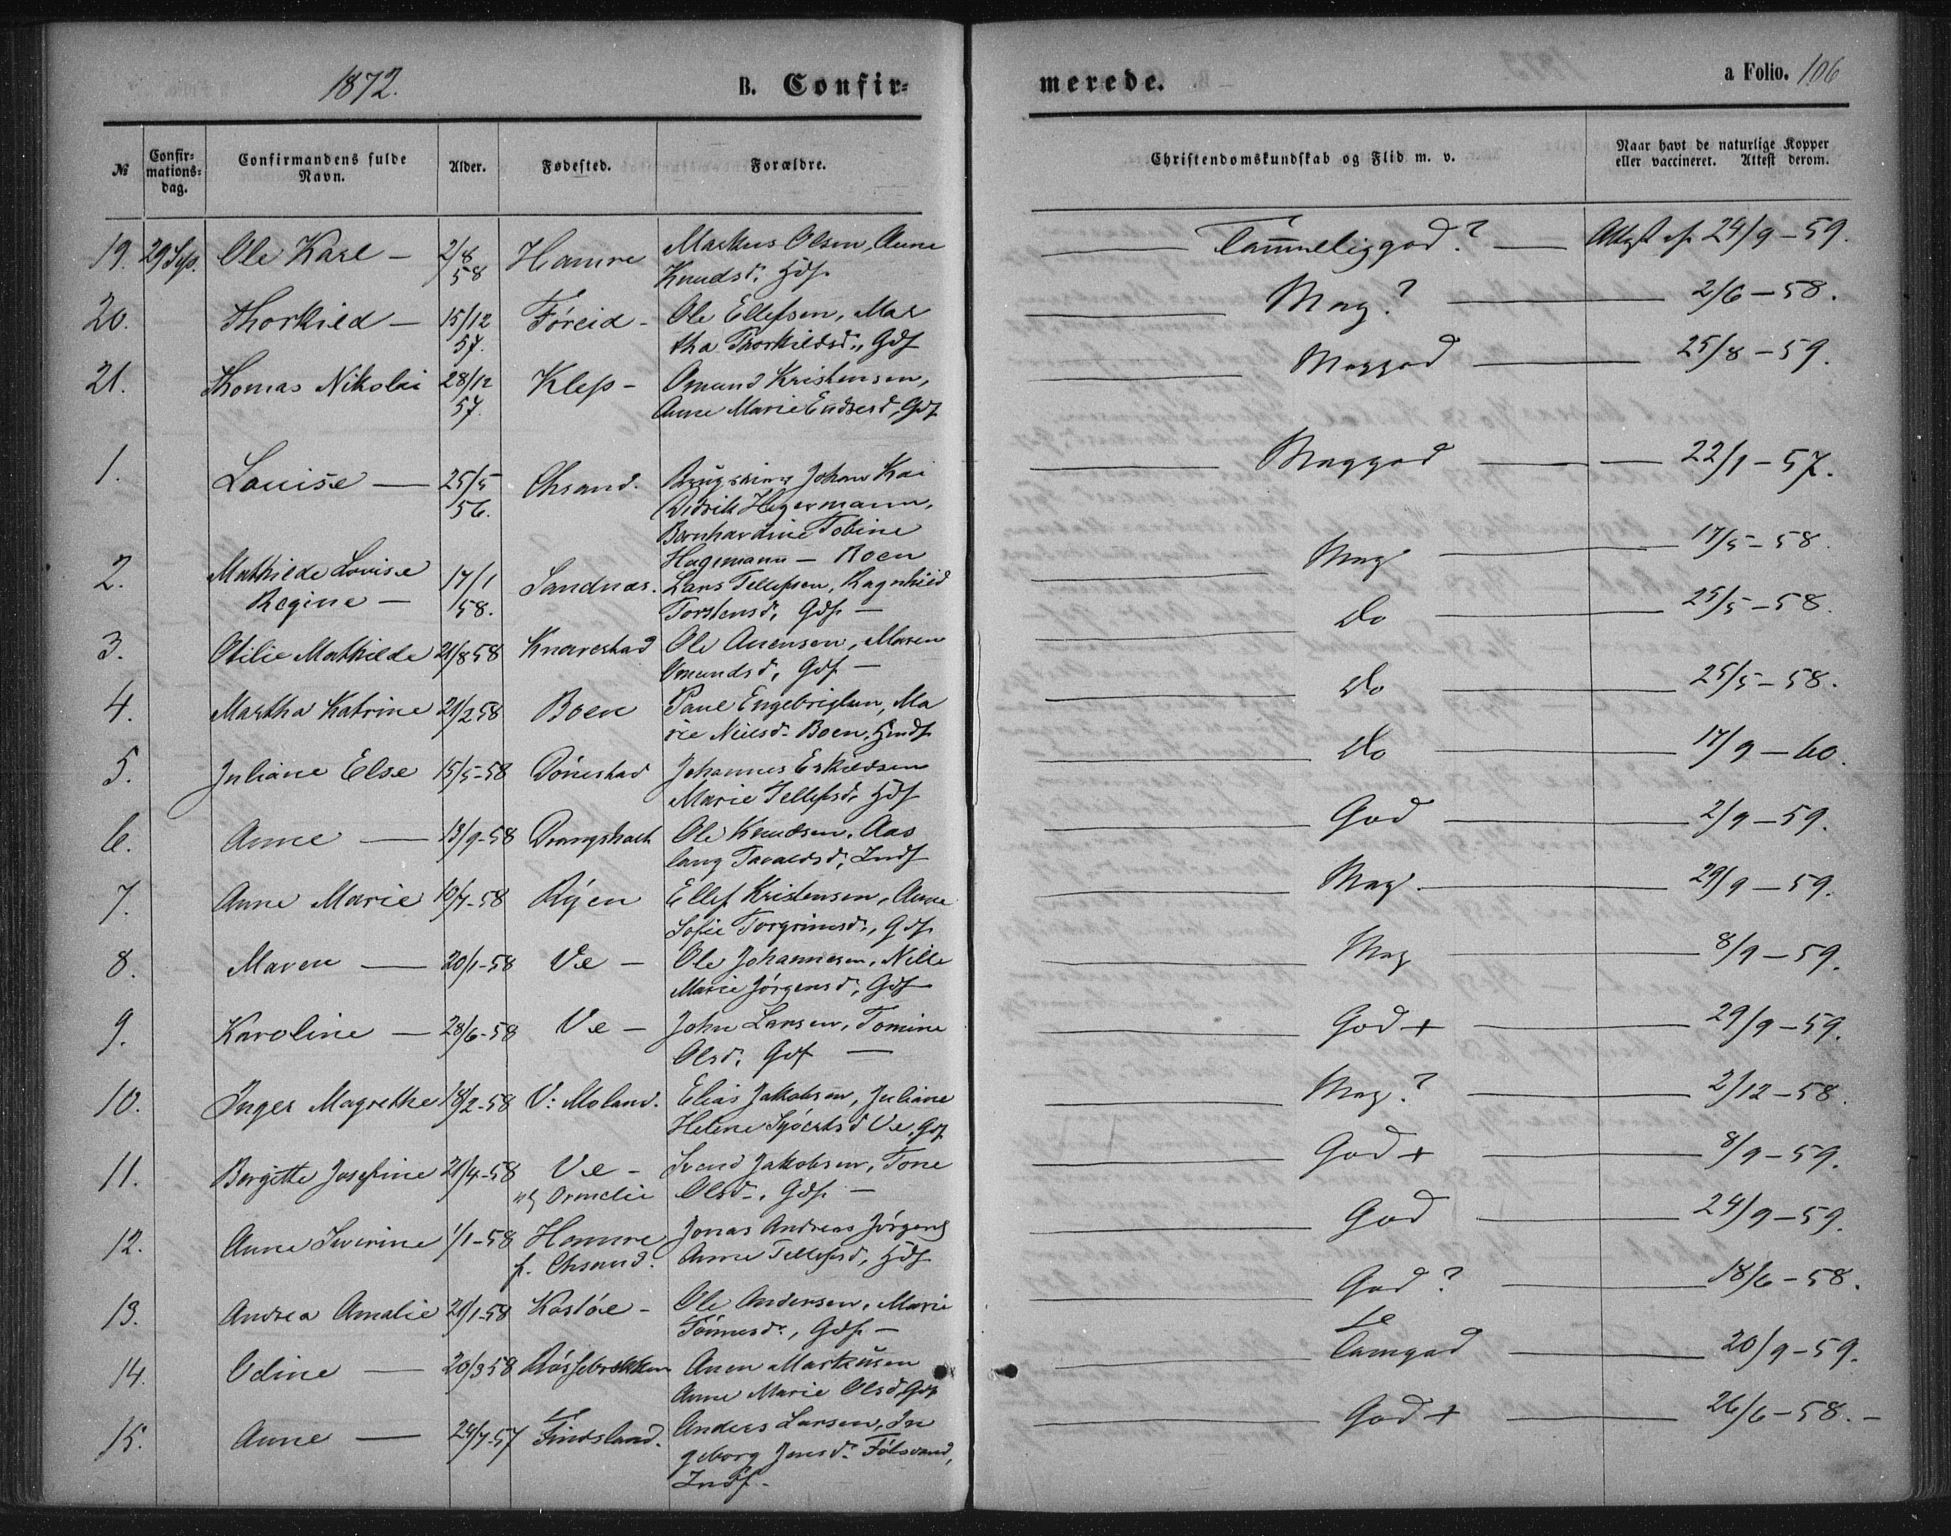 1872.
B. Confir-
merede.
a Folio. 106
№
Confir-
mations-
dag.
Confirmandens fulde
Navn.
Alder.
Fødested.
Forældre.
Christendomskundskab og Flid m. v.
Naar havt de naturlige Kopper
eller vaccineret. Attest derom.
19. 29 Sep. Ole Karl — 2/8 58 Hamre Markus Olsen, Anne
Knudsd.
Tammeliggod? — 24/9 – 59.
20. Thorkild — 15/12 57. Føreid – Ole Ellefsen, Mar
tha Thorkildsd., Gdf
Mag? — 2/6 – 58.
21. Thomas Nikolai 28/12 57. Klep – Omund Kristensen,
Anne Marie Endresd, Gdf
Meggod — 25/8 – 59.
1. Louise — 25/5 56. Chsand. Johan Kai
Didrik Hegermann,
Bernhardine Tobine
Hagemann – Boen
Meggod — 22/1 – 57.
2. Mathilde Lovise
Regine — 17/1 58. Sandnæs. Lars Tellefsen, Ragnhild
Torstensd, Gdf. —
Mag — 17/5 – 58.
3. Otilie Mathilde 21/8 58 Knarestad Ole Anensen, Maren
Omundsd, Gdf —
Do — 25/5 – 58.
4. Martha Katrine 21/2 58 Boen Paul Engebrigtsen, Ma
rie Nielsd. Boen,
Do — 25/5 – 58.
5. Juliane Else 15/5 – 58 Dønestad Johannes Eskildsen
Marie Tellefsd,
Do — 17/9 – 60.
6. Anne — 13/9 – 58 Drangsholt Ole Knudsen, Aas
laug Tavaldsd, Indf
God — 2/9 – 59.
7. Anne Marie 10/7 – 58 Ryen Ellef Kristensen, Anne
Sofie Torgrimsd, Gdf.
Mag. — 29/9 – 59.
8. Maren — 20/1 – 58 Ve – Ole Johannesen, Nille
Marie Jørgensd, Gdf
Mag — 8/9 – 59.
9. Karoline — 28/6 – 58 Ve – John Larsen, Tomine
Olsd, Gdf —
God + — 29/9 – 59.
10. Inger Magrethe 18/2 – 58 V: Moland. Elias Jakobsen, Juliane
Helene Sjøertsd Ve, Gdf
Mag.? — 2/12 – 58.
11. Bergitte Josefine 21/4 – 58 Ve – Svend Jakobsen, Tone
Olsd., Gdf. —
God + — 8/9 – 59.
12. Anne Severine 1/1 – 58 Hamre
f. Chsand. Jonas Andreas Jørgens
Anne Tellefsd,
God — 24/9 – 59.
13. Andrea Amalie 21/1 – 58 Kostøl – Ole Andersen, Marie
Tønnesd., Gdf. —
God? — 18/6 – 58.
14. Odine — 20/3 58 Anen Markusen
Anne Marie Olsd, Gdf
Tamgod — 20/9 – 59.
15. Anne — 24/7 – 57 Findsland. Anders Larsen, In
geborg Jensd. Følsvand,
Indf.
God + — 26/6 – 58. –